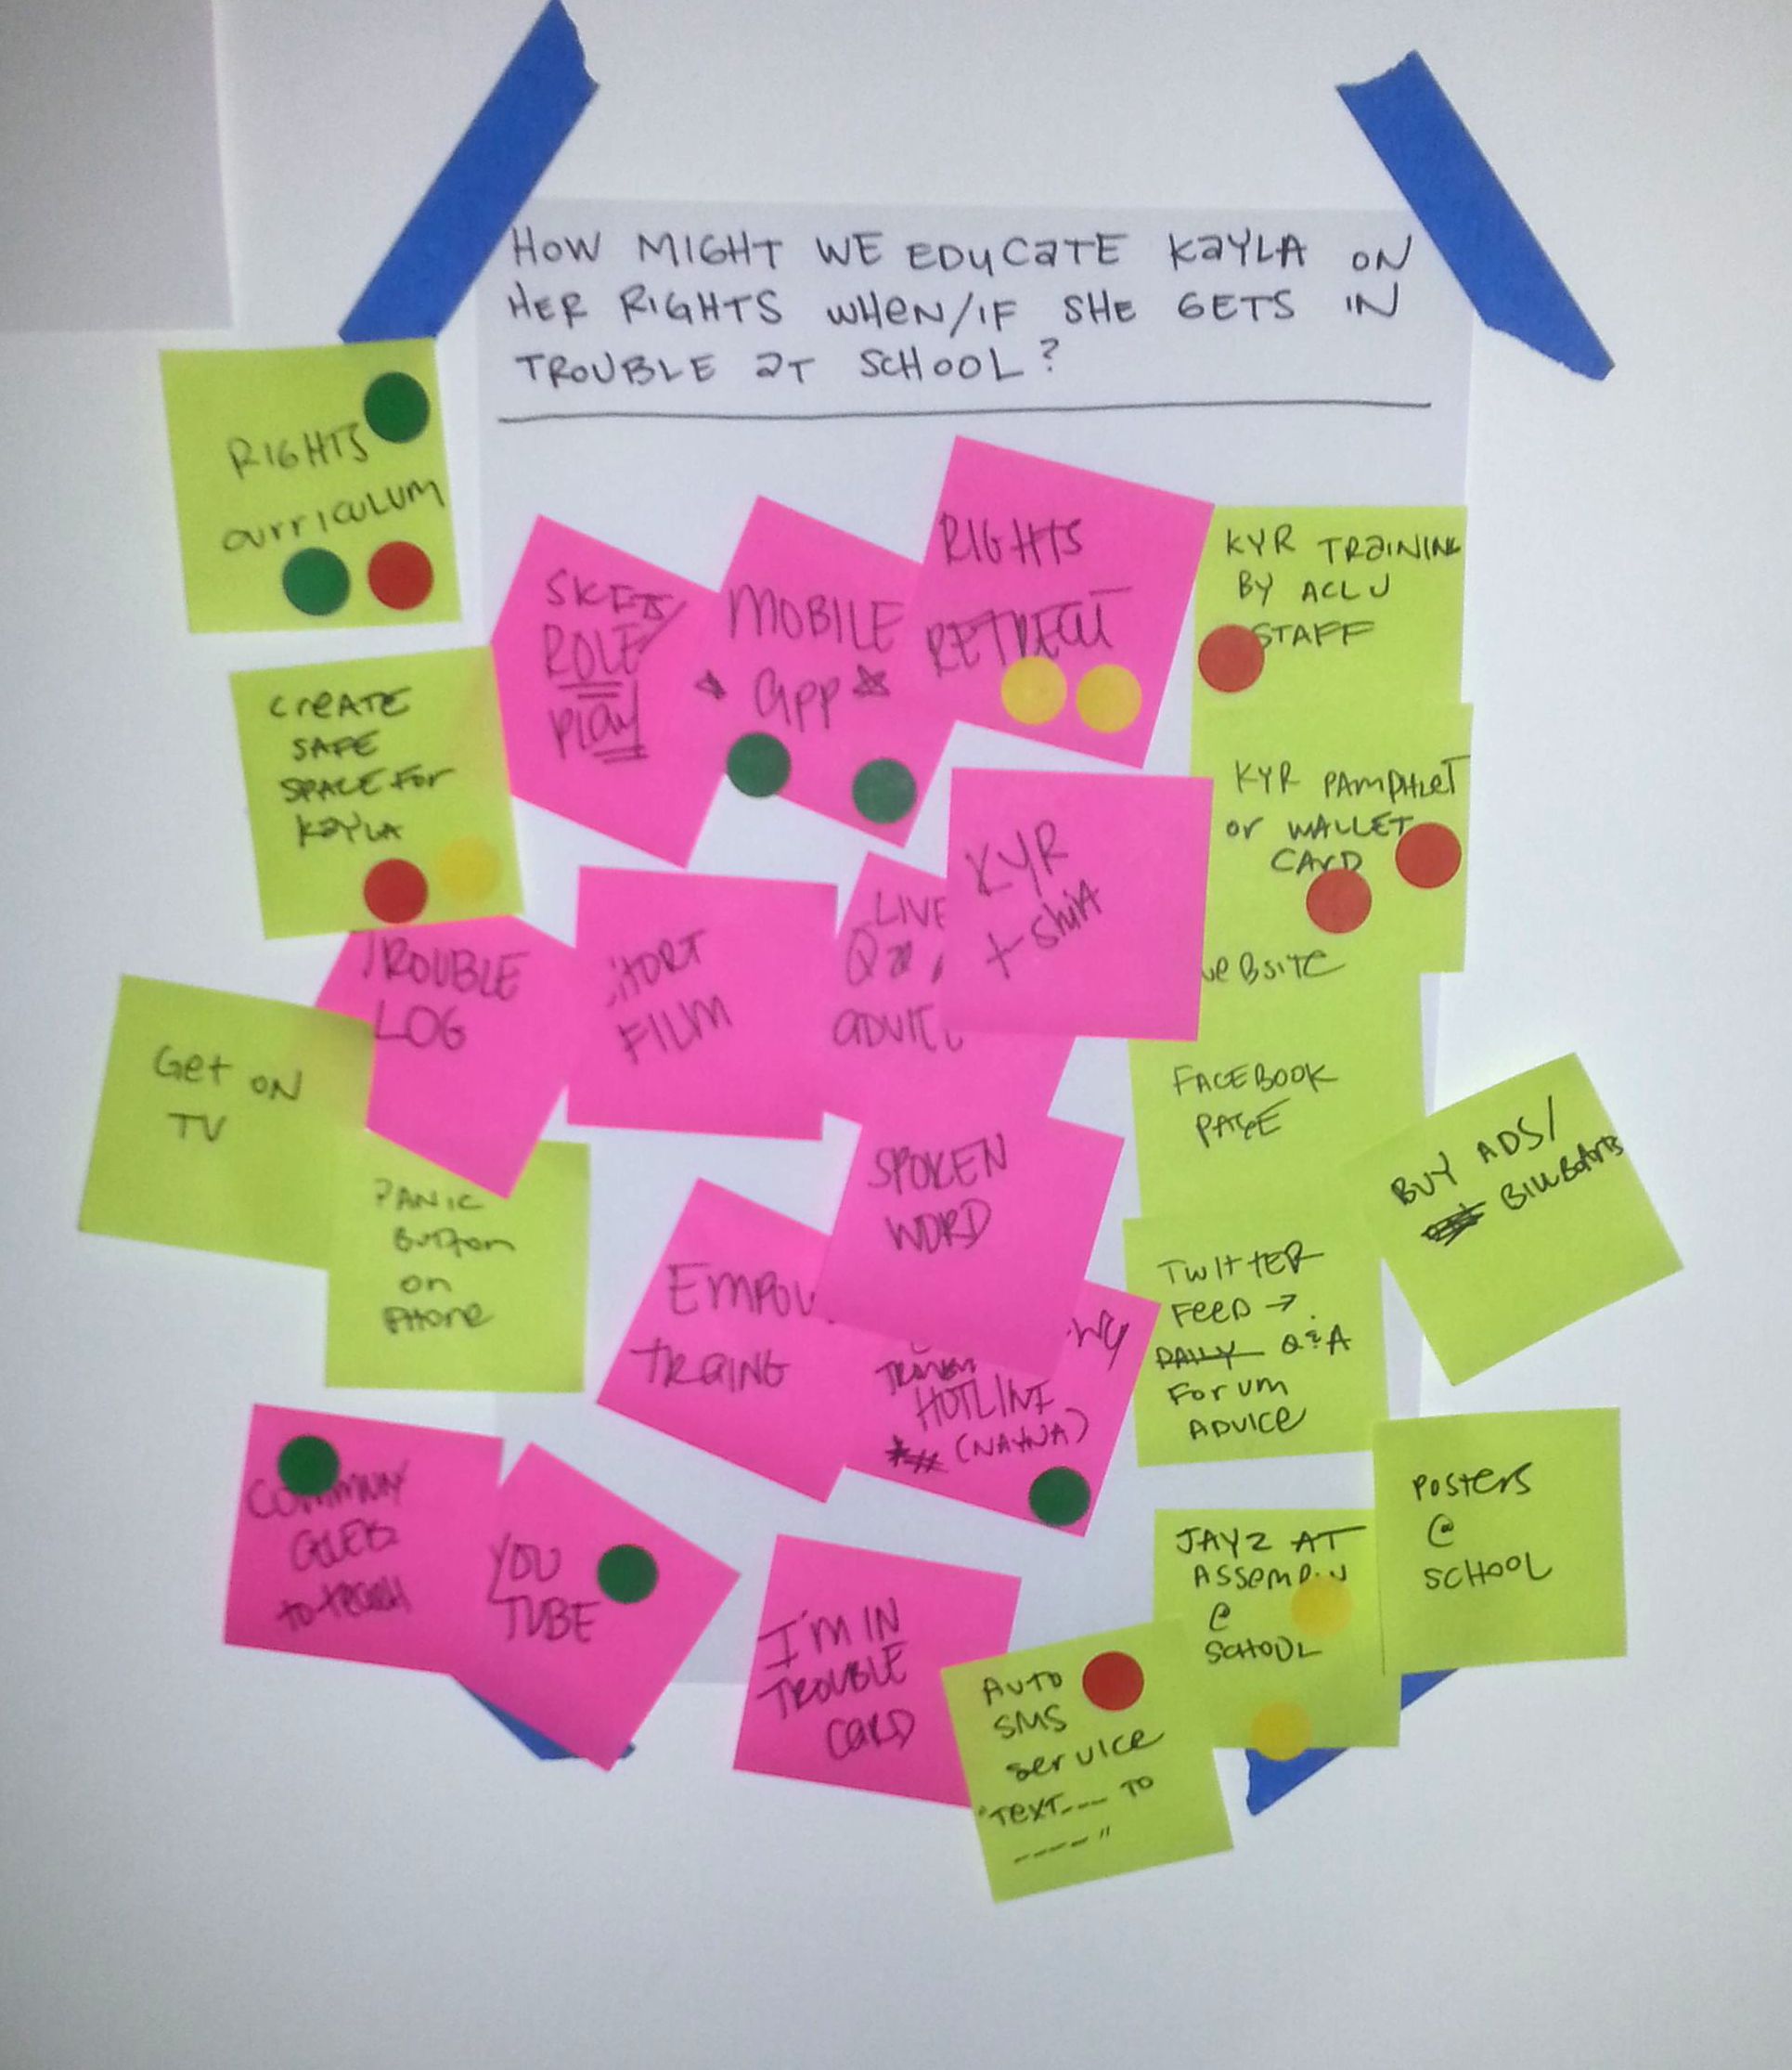 HOW MIGHT WE EDUCATE KAYLA ON
HER RIGHTS WHEN/IF SHE GETS IN
TROUBLE AT SCHOOL?
RIGHTS
curriculum
SKETS/
ROLE
play
MOBILE
app
RIGHTS
RETREAT
KYR TRAINING
BY ACLU
STAFF
CREATE
SAFE
SPACE FOR
KAYLA
KYR PAMPHLET
or WALLET
CARD
KYR
t-shirt
TROUBLE
LOG
FILM
LIVE
WEBSITE
Get ON
TV
FACEBOOK
PAGE
BUY ADS/
BILLBOARDS
PANIC
Button
on
Phone
SPOKEN
WORD
EMPOW
TRAING
HOTLINE
TWITTER
FEED →
DAILY Q&A
FORUM
ADVICE
to teach
YOU
TUBE
I'M IN
TROUBLE
CARD
JAYZ AT
ASSEMBLY
@
SCHOOL
POSTERS
@
SCHOOL
AUTO
SMS
service
"TEXT --- TO
----"